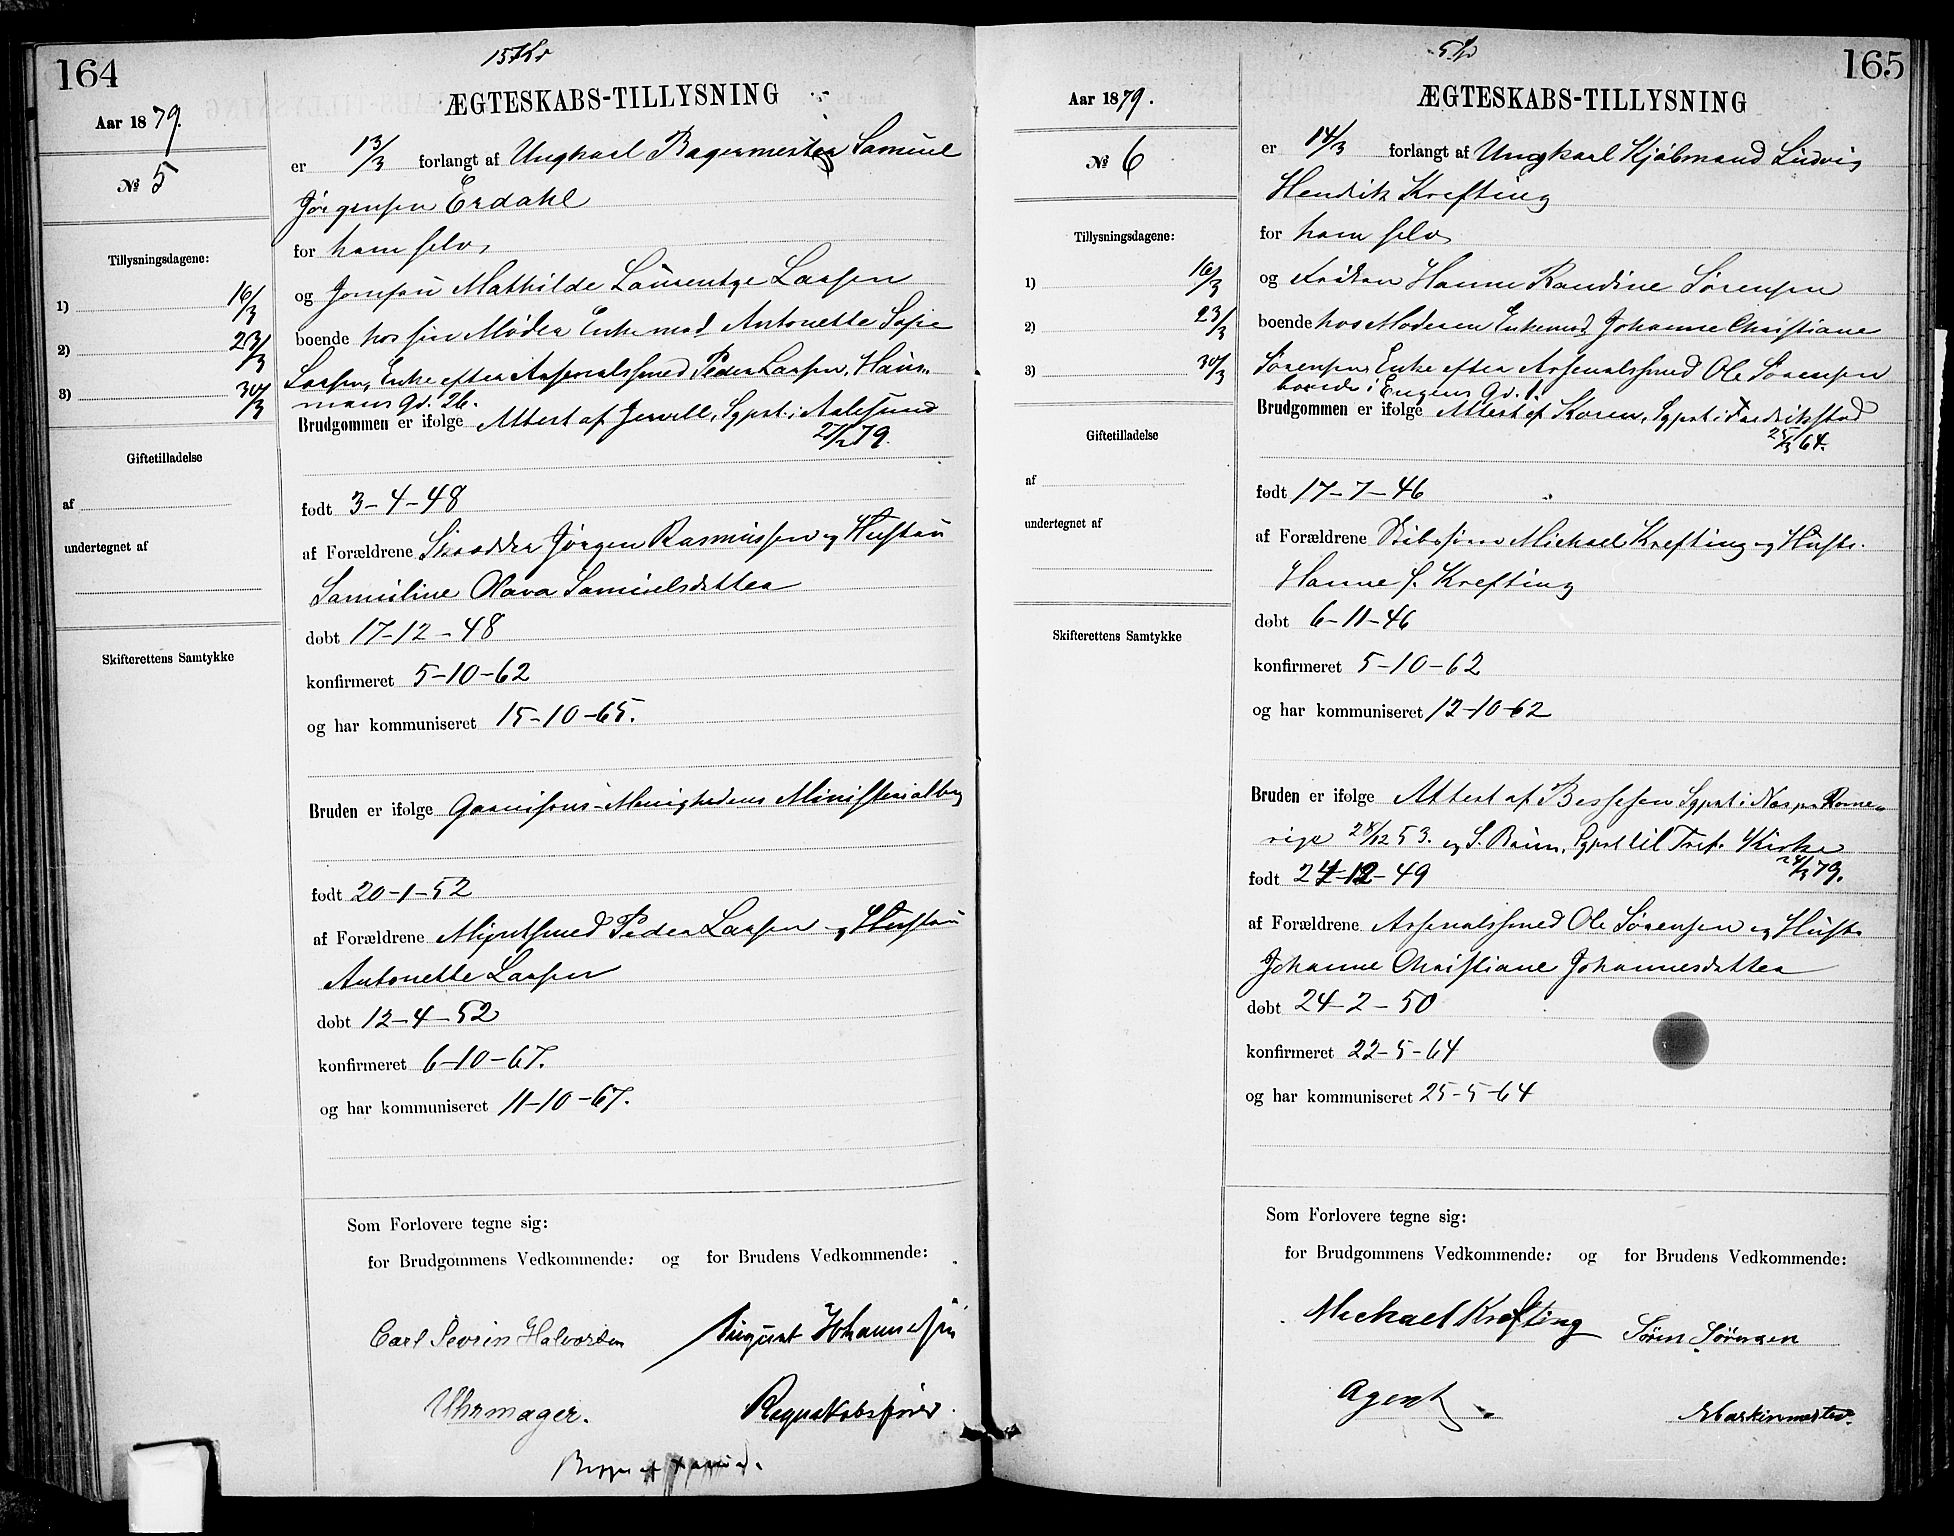 164
15 Kr
Aar 1879.
ÆGTESKABS-TILLYSNING
№ 5
er 13/3 forlangt af Ungkarl Bagermester Samuel
Jørgensen Erdahl
for ham selv
Tillysningsdagene:
1) 16/3
2) 23/3
3) 30/3
og Jomfru Mathilde Laurentze Larsen
boende hos sin Moder Enkemad. Antonette Sofie
Larsen, Enke efter Arsenalssmed Peder Larsen, Haus-
mans Gd. 26.
Brudgommen er ifølge Attest af Jervell, Sgprst. i Aalesund
79.
Giftetilladelse
af
undertegnet af
Skifterettens Samtykke
født 3-4-48
af Forældrene Skrædder Jørgen Rasmussen og Hustru
Samuline Olava Samuelsdatter
døbt 17-12-48
konfirmeret 5-10-62
og har kommuniseret 15-10-65.
Bruden er ifølge Garnisons-Menighedens Ministerialbog
født 20-1-52
af Forældrene Peder Larsen og Hustru
Antonette Larsen
døbt 12-4-52
konfirmeret 6-10-67.
og har kommuniseret 11-10-67.
Som Forlovere tegne sig:
for Brudgommens Vedkommende: og for Brudens Vedkommende:
Carl Sevrin Halvorsen August Johannesen
Uhrmager. Regnskabsfører.
Begge af
165
Aar 1879.
ÆGTESKABS-TILLYSNING
№ 6
er 14/3 forlangt af Ungkarl Kjøbmand Ludvig
Hendrik Krefting
for ham selv
Tillysningsdagene:
1) 16/3
2) 23/3
3) 30/3
og Frøken Hanne Randine Sørensen
boende hos Moderen Enkemad. Johanne Christiane
Sørensen, Enke efter Arsenalssmed Ole Sørensen
boende i Engens Gd. 1.
Brudgommen er ifølge Attest af Koren, Sgprst. i Fredriksstad
25/3 64.
Giftetilladelse
af
undertegnet af
Skifterettens Samtykke
født 17-7-46
af Forældrene Michael Krefting og Hustr.
Hanne S. Krefting
døbt 6-11-46
konfirmeret 5-10-62
og har kommuniseret 12-10-62
Bruden er ifølge Attest af Bessesen Sgprst. i Næs paa Rome-
rige 28/12 53. og S. Bruun, Sgprst til Tref. Kirke
79.
født 24-12-49
af Forældrene Arsenalssmed Ole Sørensen og Hustr.
Johanne Christiane Johannesdatter
døbt 24-2-50
konfirmeret 22-5-64
og har kommuniseret 25-5-64
Som Forlovere tegne sig:
for Brudgommens Vedkommende: og for Brudens Vedkommende:
Michael Krefting Søren Sørensen
Agent Maskinmester.